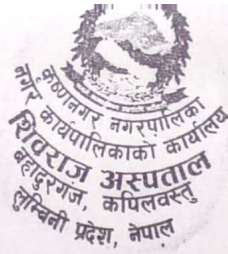 कृष्णनगर नगरपालिका
नगर कार्यपालिकाको कार्यालय
शिवराज अस्पताल
बहादुरगंज, कपिलवस्तु
लुम्बिनी प्रदेश, नेपाल